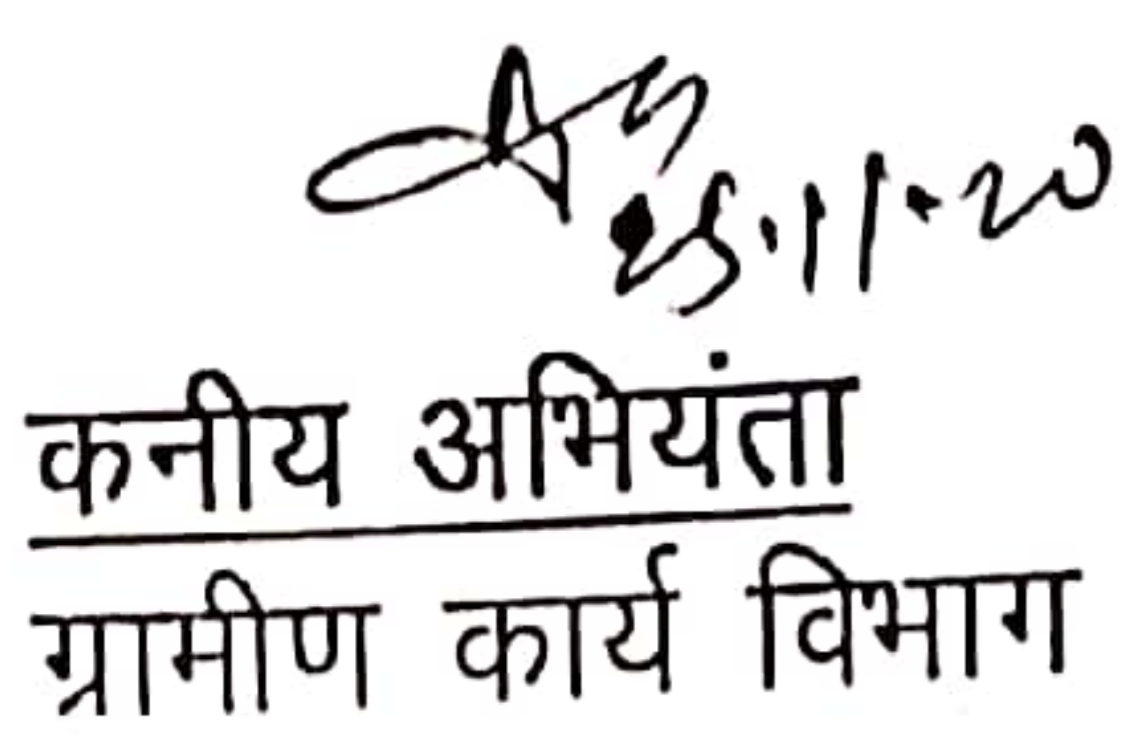 25.11.20
कनीय अभियंता
ग्रामीण कार्य विभाग